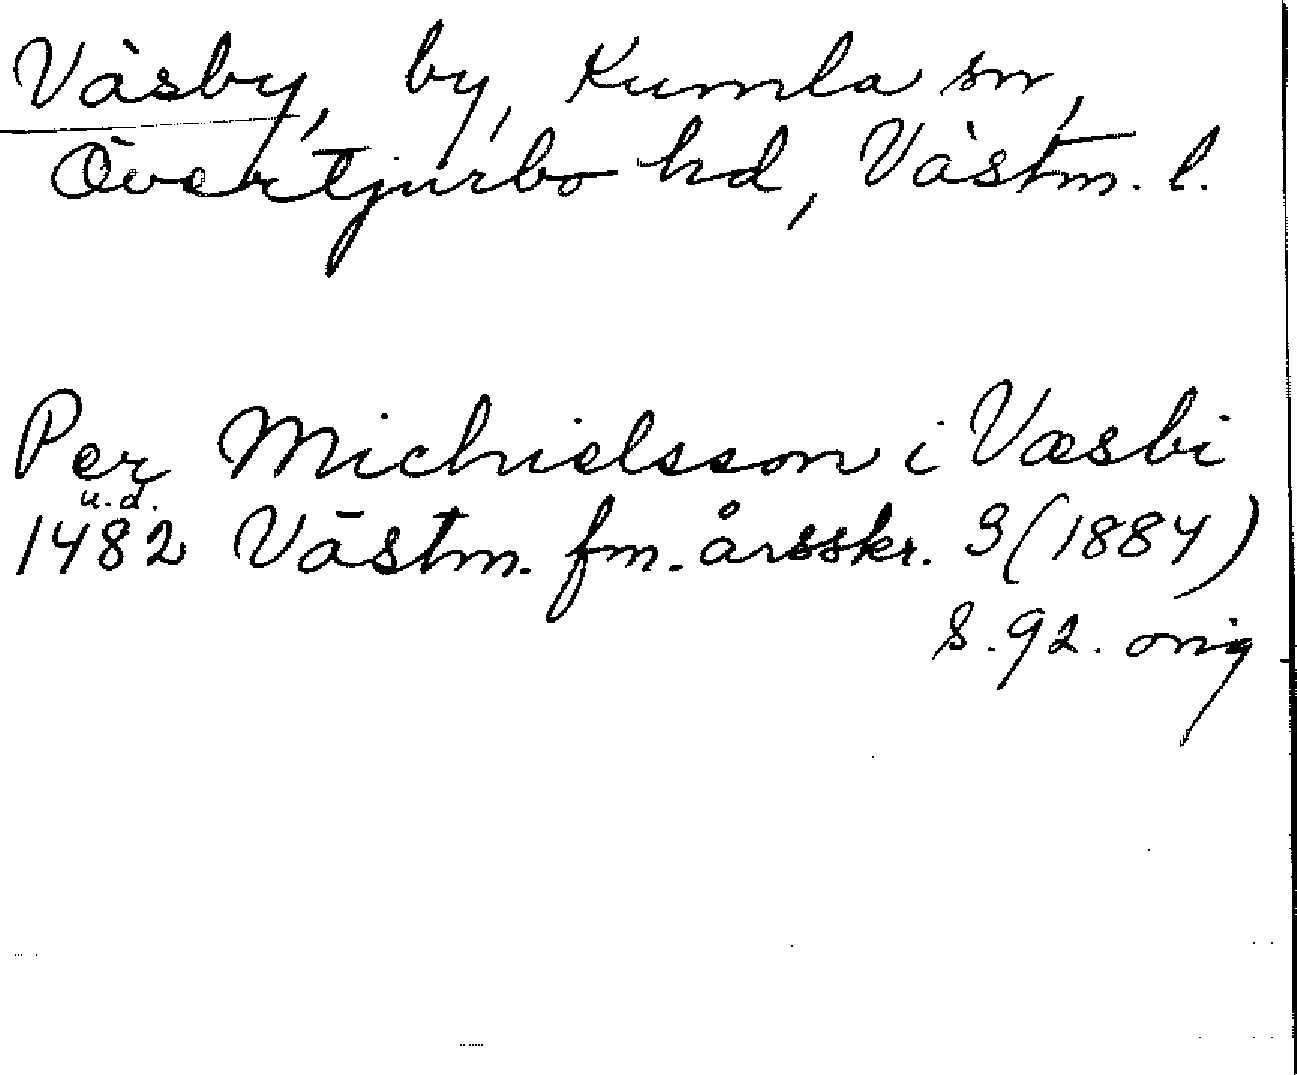 Väsby, by, Kumla sn,
Övertjurbo hd, Västm. l.
Per Michielsson i Væsbi
u.d.
1482 Västm. fm. årsskr. 3 (1884)
s. 92. orig